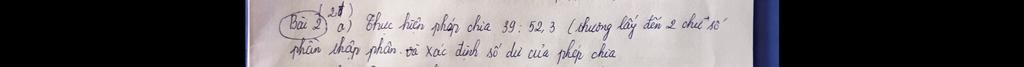 (2đ)
Bài 2, a) Thực hiện phép chia 39 : 52,3 (thương lấy đến 2 chữ số
phần thập phân. và xác định số dư của phép chia